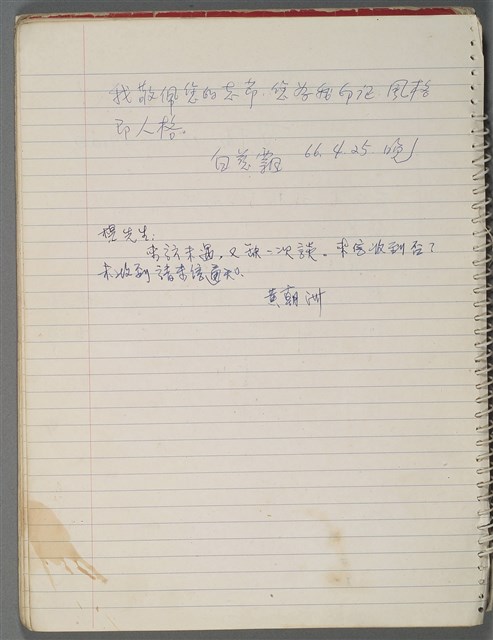 我敬佩您的志節，您為我印证，風格
即人格。
白慈飄 66.4.25. 晚
楊先生：
來訪未遇，又缺一次談。來信收到否？
未收到請來信通知。
黃朝洲